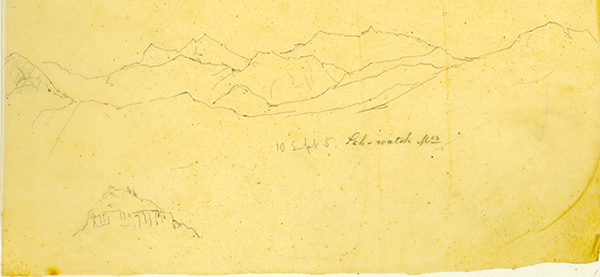 10 Sept 5. Sah-watch Mts